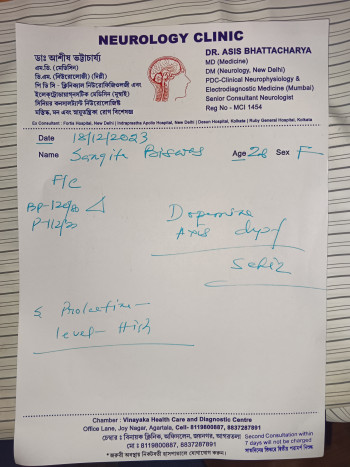 NEUROLOGY CLINIC
ডাঃ আশীষ ভট্টাচার্য্য
এম.ডি. (মেডিসিন)
ডি.এম. (নিউরোলজী) (দিল্লী)
পি ডি সি - ক্লিনিক্যাল নিউরোফিজিওলজী এবং
ইলেকট্রোডায়াগনস্টিক মেডিসিন (মুম্বাই)
সিনিয়র কনসালট্যান্ট নিউরোলোজিষ্ট
মস্তিষ্ক, মন এবং স্নায়ুতন্ত্রিকা রোগ বিশেষজ্ঞ
DR. ASIS BHATTACHARYA
MD (Medicine)
DM (Neurology, New Delhi)
PDC-Clinical Neurophysiology &
Electrodiagnostic Medicine (Mumbai)
Senior Consultant Neurologist
Reg No - MCI 1454
Ex Consultant : Fortis Hospital, New Delhi | Indraprastha Apollo Hospital, New Delhi | Desun Hospital, Kolkata | Ruby General Hospital, Kolkata
Date 18/12/2023
Name Sangita Age 26 Sex F
F/C
BP-120/80
P-112/
Dopamine
Axis dysf
Level - High
Chamber : Vinayaka Health Care and Diagnostic Centre
Office Lane, Joy Nagar, Agartala, Cell- 8119800887, 8837287891
চেম্বার : বিনায়ক ক্লিনিক, অফিসলেন, জয়নগর, আগরতলা
মো : 8119800887, 8837287891
Second Consultation within
7 days will not be charged